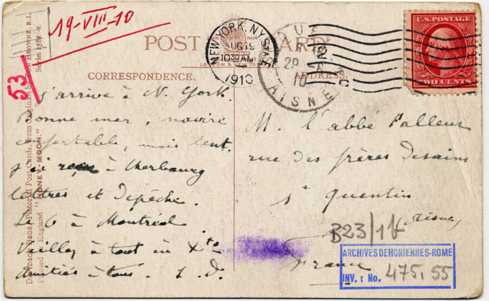 19-VIII-10
53
POST CARD
CORRESPONDENCE
ADDRESS
NEW YORK, N.Y.
AUG 19
1910
AISNE
U.S. POSTAGE
TWO CENTS
j'arrive à N. York.
Bonne mer, navire
confortable, mais lent.
J'ai reçu à Cherbourg
lettres et Dépêche.
Le 6 à Montréal
Veillez à tout en Xto
Amitiés à tous. L. D.
M. l'abbé Falleur
rue des frères Desains
St Quentin
(Aisne)
France
B23/1f
ARCHIVES DEHONIENNES-ROME
INV.: No 475,55